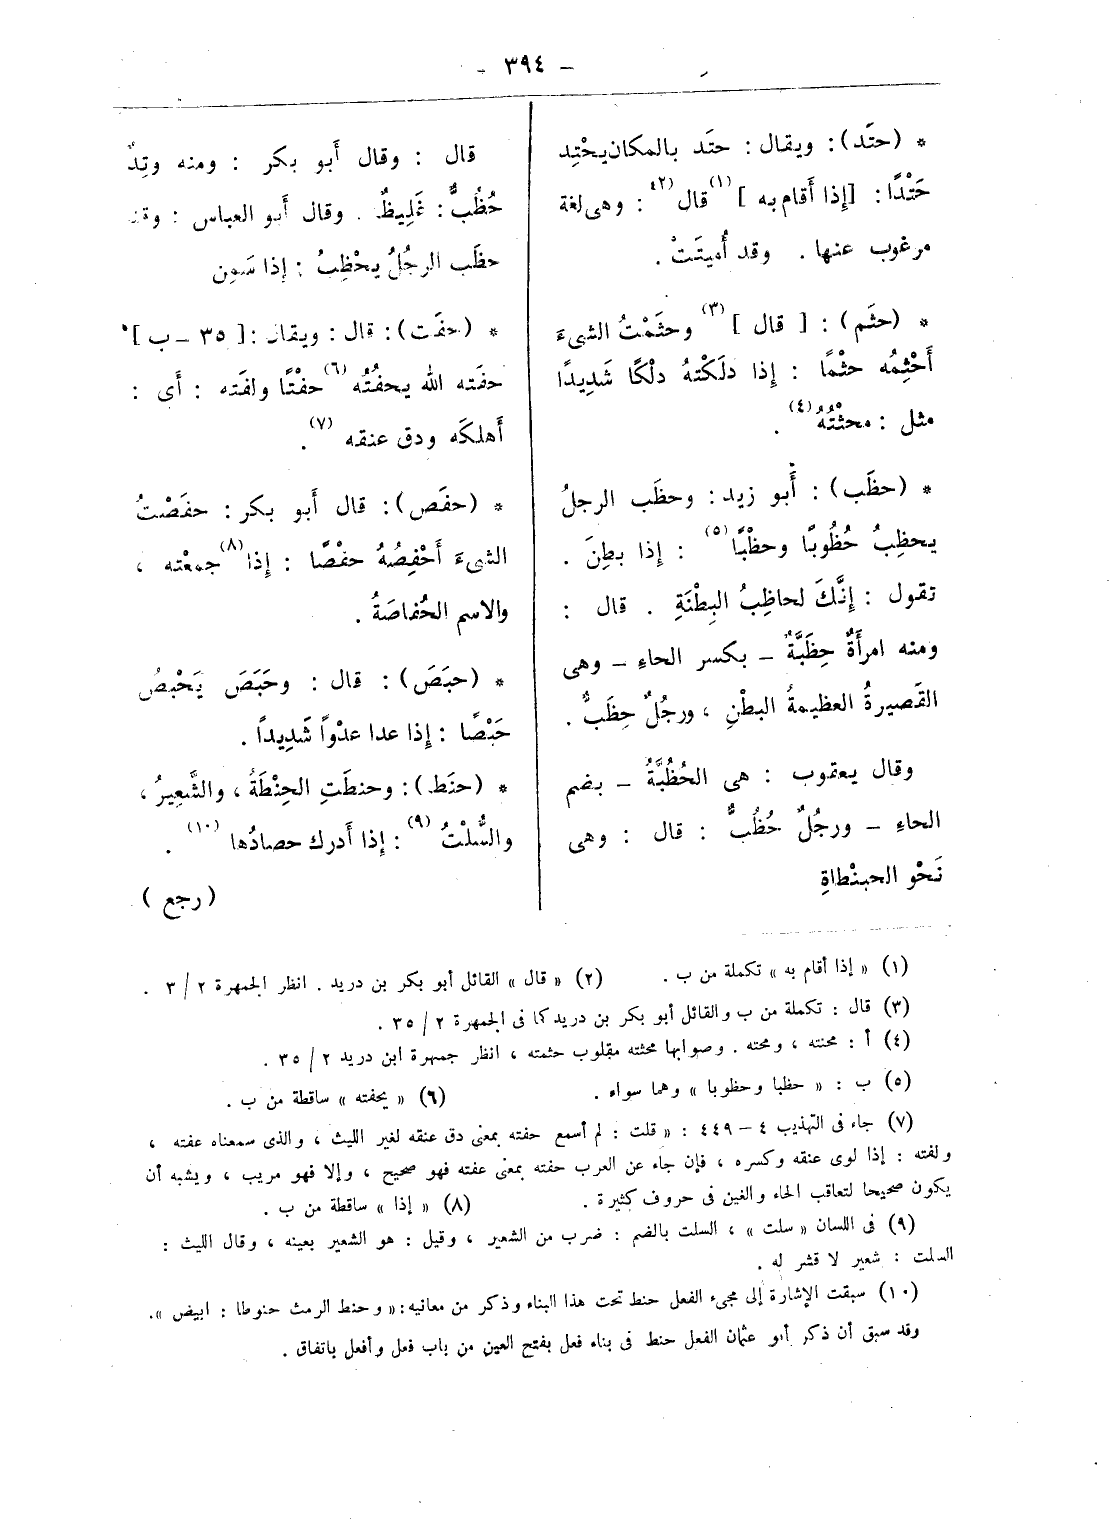 - ٣٩٤ -
* (حتَد): ويقال: حتَد بالمكان يحْتِد
حَتْدًا: [إذا أَقام به] (١) قال (٢): وهى لغة
مرغوب عنها. وقد أُميتَتْ.
* (حثَم): [قال] (٣) وحثَمْتُ الشىءَ
أَحْثِمُه حثْمًا: إِذا دلَكْتهُ دلْكًا شَدِيدًا
مثل: محثْتُهُ (٤).
* (حظَب): أَبو زيد: وحظَب الرجلُ
يحظِبُ حُظُوبًا وحظْبًا (٥): إِذا بطِنَ.
تقول: إِنَّكَ لحاظِبُ البِطْنَةِ. قال:
ومنه امرأَةٌ حِظَبَّةٌ - بكسر الحاءِ - وهى
القَصيرةُ العظيمةُ البطْنِ، ورجُلٌ حِظَبٌّ.
وقال يعقوب: هى الحُظُبَّةُ - بضم
الحاءِ - ورجُلٌ حُظُبٌّ: قال: وهى
نَحْو الحبنْطاةِ
قال: وقال أَبو بكر: ومنه وتِدٌ
حُظُبٌّ: غَلِيظٌ. وقال أَبو العباس: وقد
حظَب الرجُلُ يحْظِبُ: إِذا سَمِن
* (حفَت): قال: ويقال: [٣٥ - ب]
حفَته الله يحفُتُه (٦) حفْتًا ولفَته: أَى:
أَهلكَه ودق عنقه (٧).
* (حفَص): قال أَبو بكر: حفَصْتُ
الشىءَ أَحْفِصُهُ حفْصًا: إِذا (٨) جمعْته،
والاسم الحُفاصَةُ.
* (حبَصَ): قال: وحَبَصَ يَحْبِصُ
حَبْصًا: إِذا عدا عدْوًا شَدِيداً.
* (حنَط): وحنطَتِ الحِنْطَةُ، والشَّعِيرُ،
والسُّلْتُ (٩): إِذا أَدرك حصادُها (١٠).
(رجع)
(١) « إذا أقام به » تكملة من ب. (٢) « قال » القائل أبو بكر بن دريد. انظر الجمهرة ٢ / ٣.
(٣) قال: تكملة من ب والقائل أبو بكر بن دريد كما فى الجمهرة ٢ / ٣٥.
(٤) أ: محنته، ومحته. وصوابها محثته مقلوب حثمته، انظر جمهرة ابن دريد ٢ / ٣٥.
(٥) ب: « حظبا وحظوبا » وهما سواء. (٦) « يحفته » ساقطة من ب.
(٧) جاء فى التهذيب ٤ - ٤٤٩: « قلت: لم أسمع حفته بمعنى دق عنقه لغير الليث، والذى سمعناه عفته،
ولفته: إذا لوى عنقه وكسره، فإن جاء عن العرب حفته بمعنى عفته فهو صحيح، وإلا فهو مريب، ويشبه أن
يكون صحيحا لتعاقب الحاء والغين فى حروف كثيرة. (٨) « إذا » ساقطة من ب.
(٩) فى اللسان « سلت »، السلت بالضم: ضرب من الشعير، وقيل: هو الشعير بعينه، وقال الليث:
السلت: شعير لا قشر له.
(١٠) سبقت الإشارة إلى مجىء الفعل حنط تحت هذا البناء وذكر من معانيه: « وحنط الرمث حنوطا: ابيض ».
وقد سبق أن ذكر أبو عثمان الفعل حنط فى بناء فعل بفتح العين من باب فعل وأفعل باتفاق.